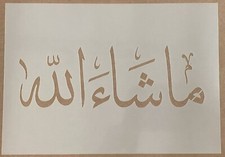 ما شاءَ الله